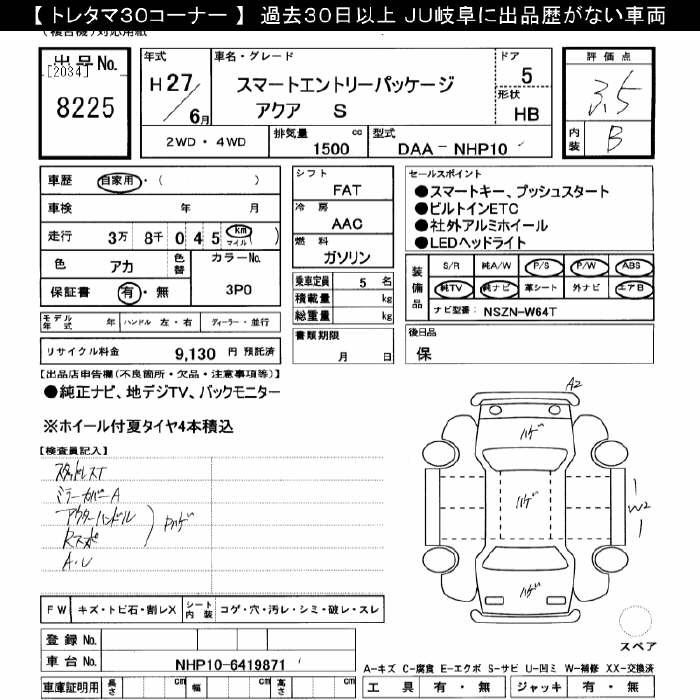 【 トレタマ30コーナー 】 過去30日以上 JU岐阜に出品歴がない車両
(複合機)対応用紙
出品No.
[2034]
8225
年式
H27/6月
車名・グレード
スマートエントリーパッケージ
アクア S
ドア
5
形状
HB
2WD・4WD
排気量
1500 cc
型式
DAA-NHP10
評価点
3.5
内装
B
車歴 自家用・( )
車検 年 月
走行 3万 8千 0 4 5 km マイル ( )
色 アカ
色替
カラーNo.
3P0
保証書 有・無
モデル年式 年 ハンドル 左・右 ディーラー・並行
リサイクル料金 9,130 円 預託済
シフト
FAT
冷房
AAC
燃料
ガソリン
乗車定員 5 名
積載量 kg
総重量 kg
書類期限
月 日
セールスポイント
●スマートキー、プッシュスタート
●ビルトインETC
●社外アルミホイール
●LEDヘッドライト
装備品
S/R 純A/W P/S P/W ABS
純TV 純ナビ 革シート 外ナビ エアB
ナビ型番: NSZN-W64T
後日品
保
【出品店申告欄(不良箇所・欠品・注意事項等)】
●純正ナビ、地デジTV、バックモニター
※ホイール付夏タイヤ4本積込
【検査員記入】
スタッドレスT
ミラーカバーA
アウターハンドル
Rスポ
A・U
A2
ハゲ
ハゲ
W2
ハゲ
スペア
FW キズ・トビ石・割レX
シート内装 コゲ・穴・汚レ・シミ・破レ・スレ
登録No.
車台No. NHP10-6419871
車庫証明用 長さ cm 幅 cm 高さ cm
A-キズ C-腐食 E-エクボ S-サビ U-凹ミ W-補修 XX-交換済
工具 有・無 ジャッキ 有・無